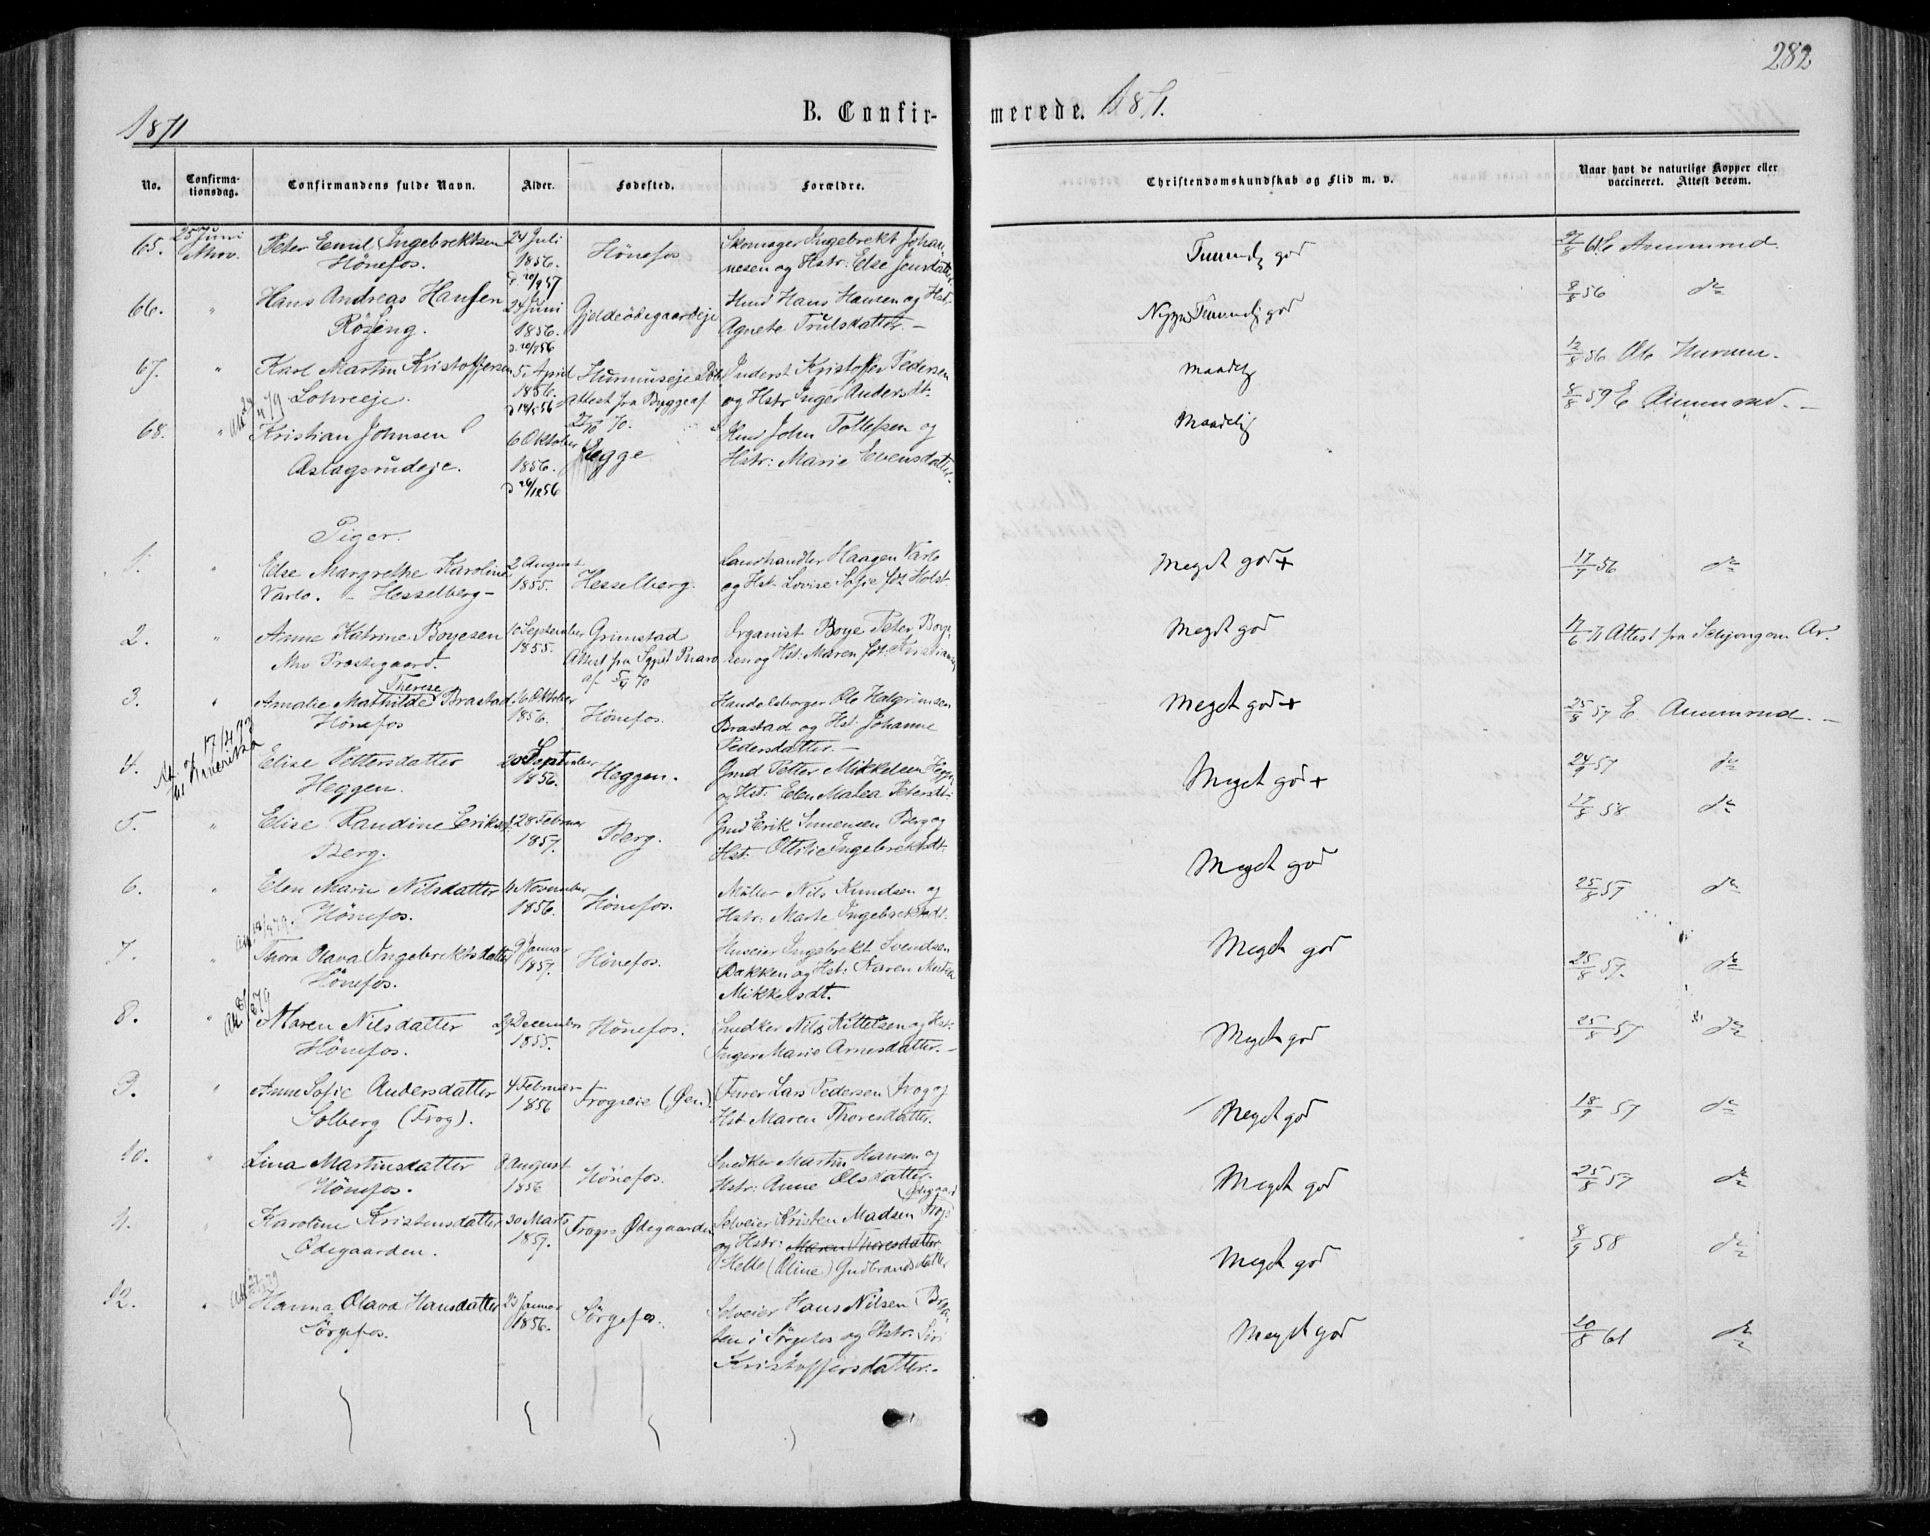 282
1871
B. Confir-
merede. 1871.
No.
Confirma-
tionsdag.
Confirmandens fulde Navn.
Alder.
Fødested.
Forældre.
Christendomskundskab og Flid m. v.
Naar havt de naturlige Kopper eller
vaccineret. Attest derom.
65. 25 Juni Peter Emil Ingebrektsen 24 Juli Hönefos Skomager Ingebrekt Johan-
Hönefos. 1856. nesen og Hstr: Else Jensdatter
god
66. " Hans Andreas Hansen 24 Juni Hans Hansen og Hstr:
1856. Agnete Trulsdatter. -
god 8/8 56 do
67. " Karl Martin Kristoffersen 5. April Inderst Kristoffer Pedersen
1856. Attest fra og Hstr Inger Andersdt.
12/8 56
68. " Kristian Johnsen 6 Oktober Hegge John Tollefsen og
Aslagsrudeje. 1856. Hstr: Marie Evensdatter.
26/12 56
Maadelig 8/8 59 E
Piger.
1. " Else Margrethe Karoline 2 August Hesselberg. Landhandler Haagen Varlo
Varlo. - Hesselberg - 1855. og Hst. Lovise Sofie föt Holst
Meget god + 17/9 56 do
2. " Anne Katrine Boyesen 10 September Grimstad Organist Boye Peter Boye-
Prestegaard. 1855. Attest fra sen og Hst: Maren föt Kristiansen
Meget god 17/6 71 Attest fra
3. " Amalie Mathilde Therese Brastad. 16 Oktober Hönefos. Handelsborger Ole Halgrimsen
Hönefos 1856. Brastad og Hst: Johanne
Pedersdatter. -
Meget god + 25/8 57 E
4. Elise Pettersdatter 20 September Heggen. Gmd Petter Mikkelsen Heggen
Heggen. 1856. og Hst: Elen Matea Petersdt:
Meget god + 24/9 57 do
5. " Elise Randine Eriksdt 28 Februar Berg. Gmd Erik Simensen Berg og
Berg. 1857. Hst: Ottilie Ingebrektsdt:
Meget god 17/8 58 do
6. " Elen Marie Nilsdatter November Hönefos. Möller Nils Knudsen og
Hönefos. 1856. Hstr: Marte Ingebrektsdt.
Meget god 25/8 57 do
7. " Thora Olava Ingebrektsdatter 9 Januar Hönefos. Huseier Ingebrekt Svendsen
Hönefos. 1857. Bakken og Hst: Karen
Mikkelsdt.
Meget god 25/8 57. do
8. " Maren Nilsdatter 29 December Hönefos. Snedker Nils Kittelsen og Hst:
Hönefos. 1855. Inger Marie Arnesdatter. -
Meget god 25/8 57 do
9. " Anne Sofie Andersdatter 4 Februar Frogseie (Øen). Furer Lars Pedersen Frog og
Solberg (Frog). 1856 Hst Maren Thoresdatter.
Meget god 18/9 57 do
10. " Lina Martinsdatter 8 August Hönefos. Snedker Martin Hansen og
Hönefos. 1856 Hstr: Anne Olsdatter.
Meget god 25/8 57 do
11. Karoline Kristensdatter 30 Marts Frogs Ødegaarden Selveier Kristen Madsen Frogs
Ødegaarden. 1857. Ødegaard og Hstr: Maren Thoresdatter
Helle (Oline) Gudbrandsdatter
Meget god 8/9 58 do
12. " Hanna Olava Hansdatter 23 Januar Sörgefos. Selveier Hans Nilsen
Sörgefos. 1856. i Sörgefos og Hstr: Siri
Kristoffersdatter. -
Meget god 20/8 61 do